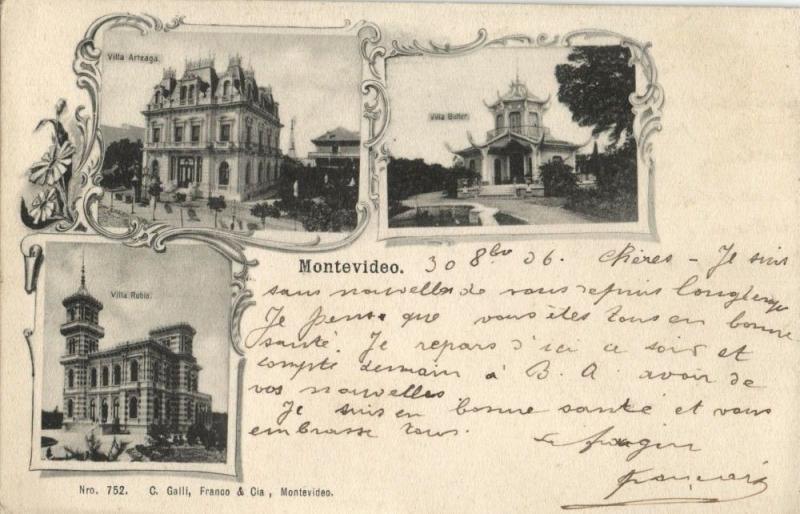 Villa Arteaga.
Villa Butler.
Villa Rubio.
Montevideo. 30 8bre 06. Chères - Je suis
sans nouvelles de vous depuis longtemps
Je pense que vous êtes tous en bonne
santé. Je repars d'ici ce soir et
compte demain à B. A. avoir de
vos nouvelles.
Je suis en bonne santé et vous
embrasse tous.
François
Nro. 752. C. Galli, Franco & Cia, Montevideo.